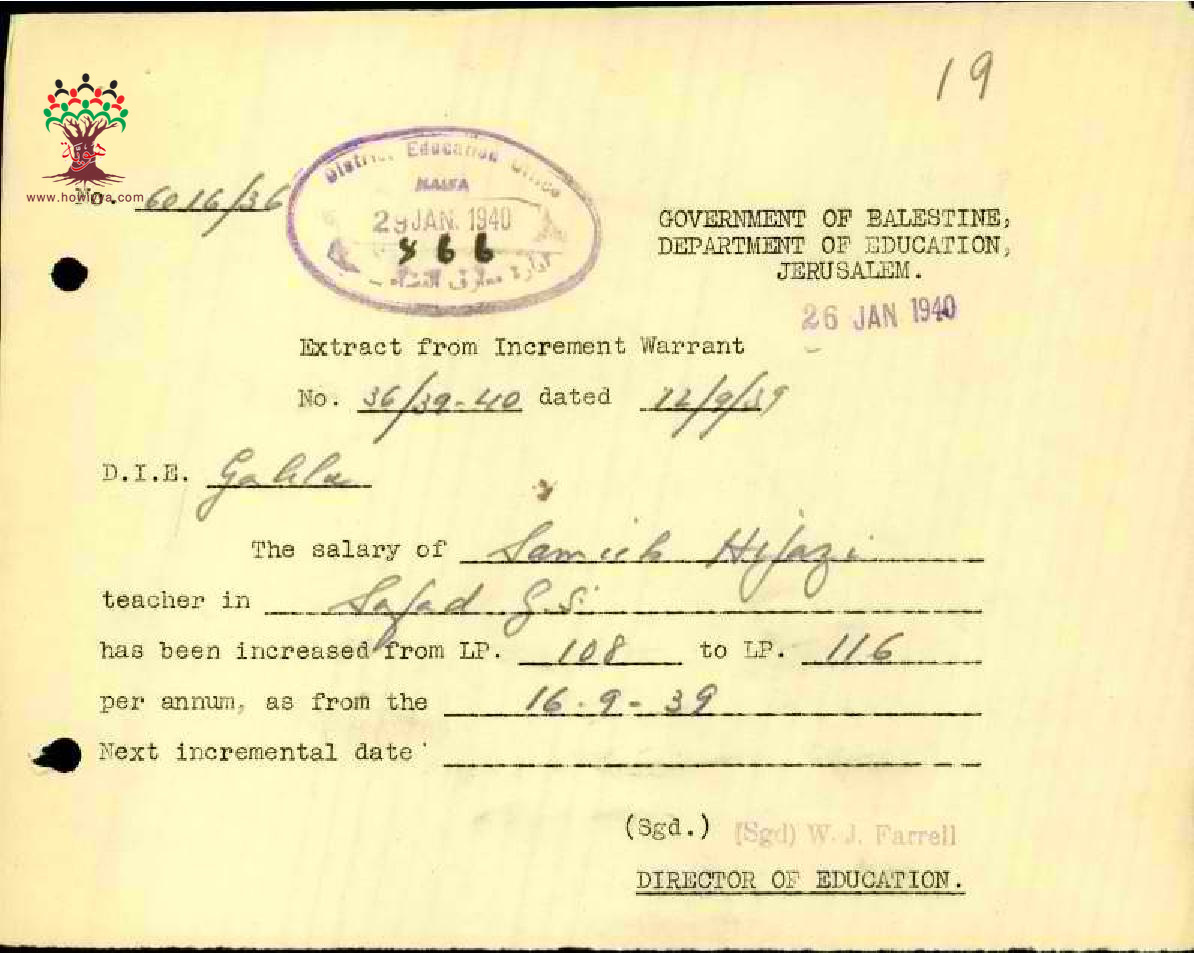 19
www.howiyya.com
No. 6016/36
District Education Office
HAIFA
29 JAN. 1940
866
GOVERNMENT OF BALESTINE,
DEPARTMENT OF EDUCATION,
JERUSALEM.
26 JAN 1940
Extract from Increment Warrant
No. 36/39-40 dated 12/9/39
D.I.E.
The salary of Samich Hijazi
teacher in Safad G.S.
has been increased from LP. 108 to LP. 116
per annum, as from the 16-9-39
Next incremental date
(Sgd.) (Sgd) W. J. Farrell
DIRECTOR OF EDUCATION.